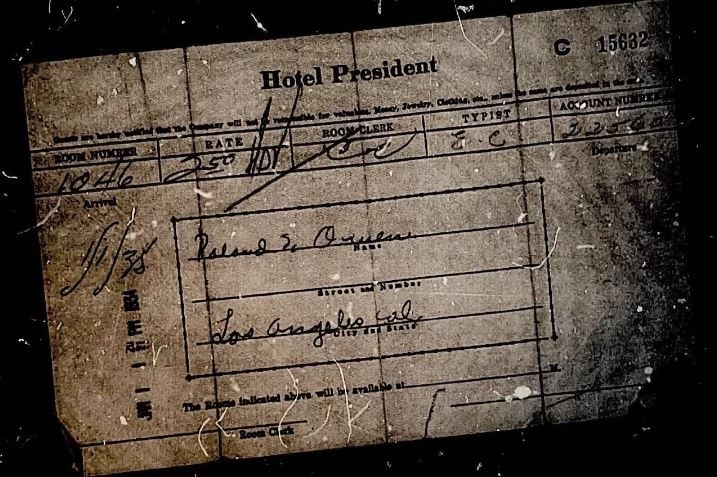 C 15632
Hotel President
Guests are hereby notified that the Company will not be responsible for valuables, Money, Jewelry, Clothing, etc., unless the same are deposited in the
ROOM NUMBER RATE ROOM CLERK TYPIST ACCOUNT NUMBER
1046 2.50 E. C
Arrival Departure
Roland
Name
Street and Number
Los Angeles Cal.
City and State
The Rooms indicated above will be available at
Room Clerk